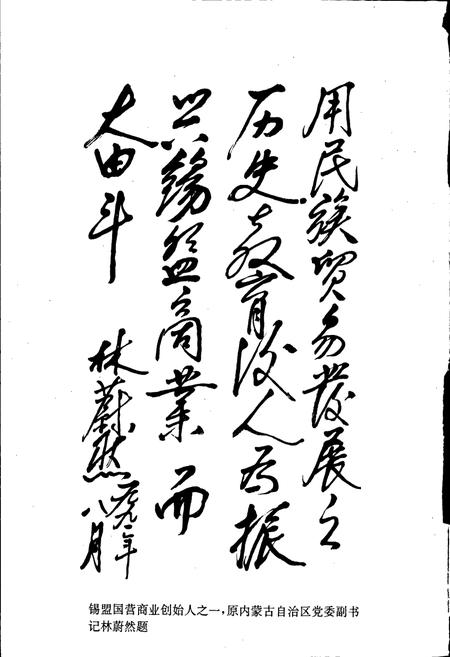 用民族贸易发展之
历史去教育后人为振
兴锡盟商业而
奋斗
林蔚然
一九九一年
八月
锡盟国营商业创始人之一，原内蒙古自治区党委副书
记林蔚然题